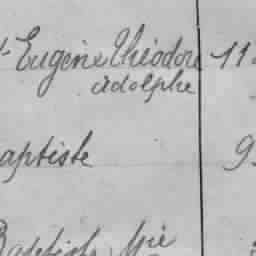 Eugène Théodore 11
adolphe
aptiste 9
Baptiste